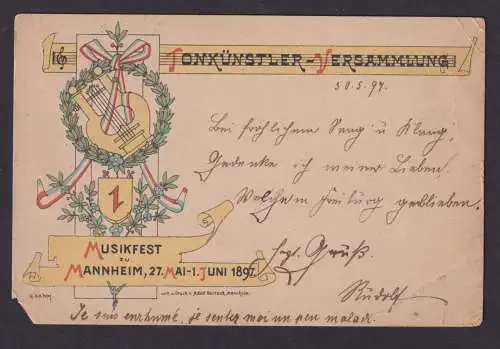 TONKÜNSTLER-VERSAMMLUNG
30.5.97.
Bei fröhlichem Sang u Klang,
Gedenke ich meiner Lieben.
Welche in Freiburg geblieben.
Gruß.
Rudolf
1
MUSIKFEST
ZU
MANNHEIM, 27. MAI-1. JUNI 1897.
Je suis enrhumé, je sentez moi un peu malade.